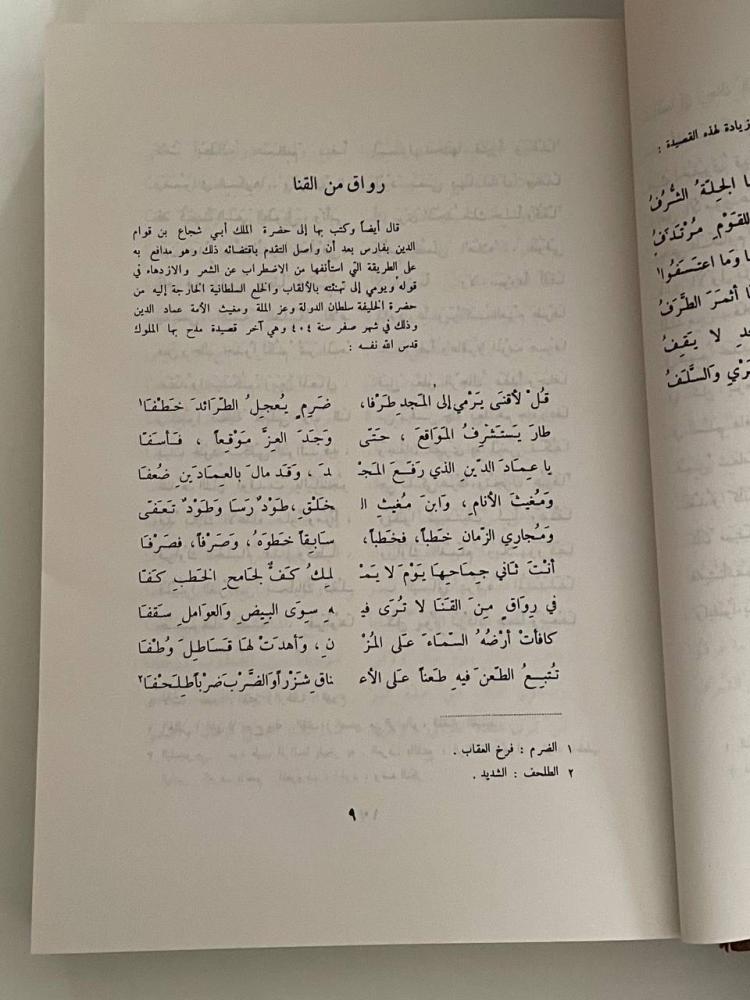 رواق من القنا
قال أيضاً وكتب بها إلى حضرة الملك أبي شجاع بن قوام
الدين بفارس بعد أن واصل التقدم باقتضائه ذلك وهو مدافع به
على الطريقة التي استأنفها من الاضطراب عن الشعر والازدهاء في
قوله ويومي إلى تهنئته بالألقاب والخلع السلطانية الخارجة إليه من
حضرة الخليفة سلطان الدولة وعز الملة ومغيث الأمة عماد الدين
وذلك في شهر صفر سنة ٤٠٤ وهي آخر قصيدة مدح بها الملوك
قدس الله نفسه :
قُلْ لأقنَى يَرْمي إلى المَجدِ طَرْفَا، ضَرِمٍ يُعجِلُ الطّرَائدَ خَطْفَا١
طارَ يَستَشرِفُ المَوَاقعَ ، حَتّى وَجَدَ العِزَّ مَوْقِعاً ، فَأسَفّا
يا عِمادَ الدّينِ الذي رَفَعَ المَجْـ ـدَ ، وَقَد مالَ بالعِمادَينِ ضُعفَا
وَمُغيثَ الأنامِ، وَابنَ مُغيثِ الـ ـخَلْقِ، طَوْدٌ رَسَا وَطَوْدٌ تَعَفّى
وَمُجارِي الزّمانِ خَطباً، فَخطباً، سَابِقاً خَطوَهُ، وَصَرْفاً، فصَرْفَا
أنْتَ ثَاني جِماحِهَا يَوْمَ لا يَمْـ ـلِكُ كَفٌّ لجَامحِ الخَطبِ كَفّا
في رِوَاقٍ مِنَ القَنَا لا تُرَى فيـ ـهِ سِوَى البِيضِ وَالعَوَامِلِ سَقفَا
كافأتْ أرْضُهُ السّمَاءَ عَلى المُزْ نِ، وَأهدَتْ لهَا قَسَاطِلَ وُطْفَا
تُتبِعُ الطّعنَ فيهِ طَعناً عَلى الأعـ ـناقِ شَزْراً وَالضَّرْبَ ضَرْباً طِلَحْفَا٢
١ الضرم : فرخ العقاب .
٢ الطلحف : الشديد .
٩
زيادة لهذه القصيدة :
الجِلّةُ الشُّرُفُ
للقَوْمِ مُرْتَدَفُ
وَمَا اعتَسَفُوا
أثمَرَ الطَّرَفُ
لا يَقِفُ
وَالسَّلَفُ